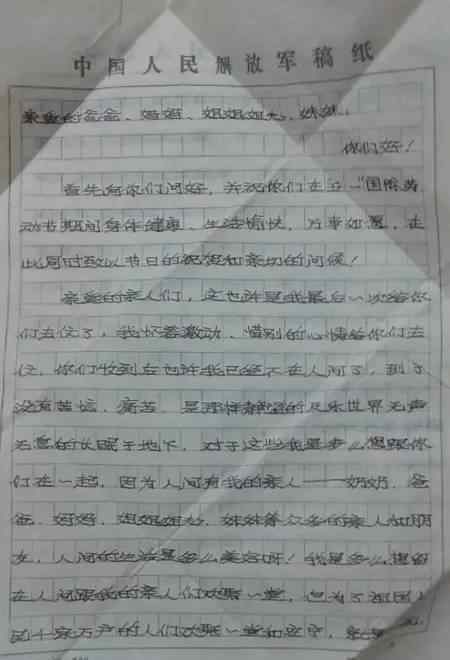 中国人民解放军稿纸
亲爱的爸爸、妈妈、姐姐姐夫、妹妹：
你们好！
首先向你们问好，并祝你们在五一“国际劳
动节期间身体健康、生活愉快，万事如愿，在
此同时致以节日的祝贺和亲切的问候！
亲爱的亲人们，这也许是我最后一次给你
们去信了，我怀着激动、惜别的心情给你们去
信，你们收到后也许我已经不在人间了，到了
没有苦恼、痛苦、是那样的极乐世界无声
无息的长眠于地下，对于这些我是多么想跟你
们在一起，因为人间有我的亲人——奶奶、爸
爸、妈妈、姐姐姐夫、妹妹等众多的亲人和朋
友，人间的生活是多么美好呀！我是多么想留
在人间跟我的亲人们欢聚一堂，但为了祖国人
民千家万户的人们欢聚一堂和安宁，